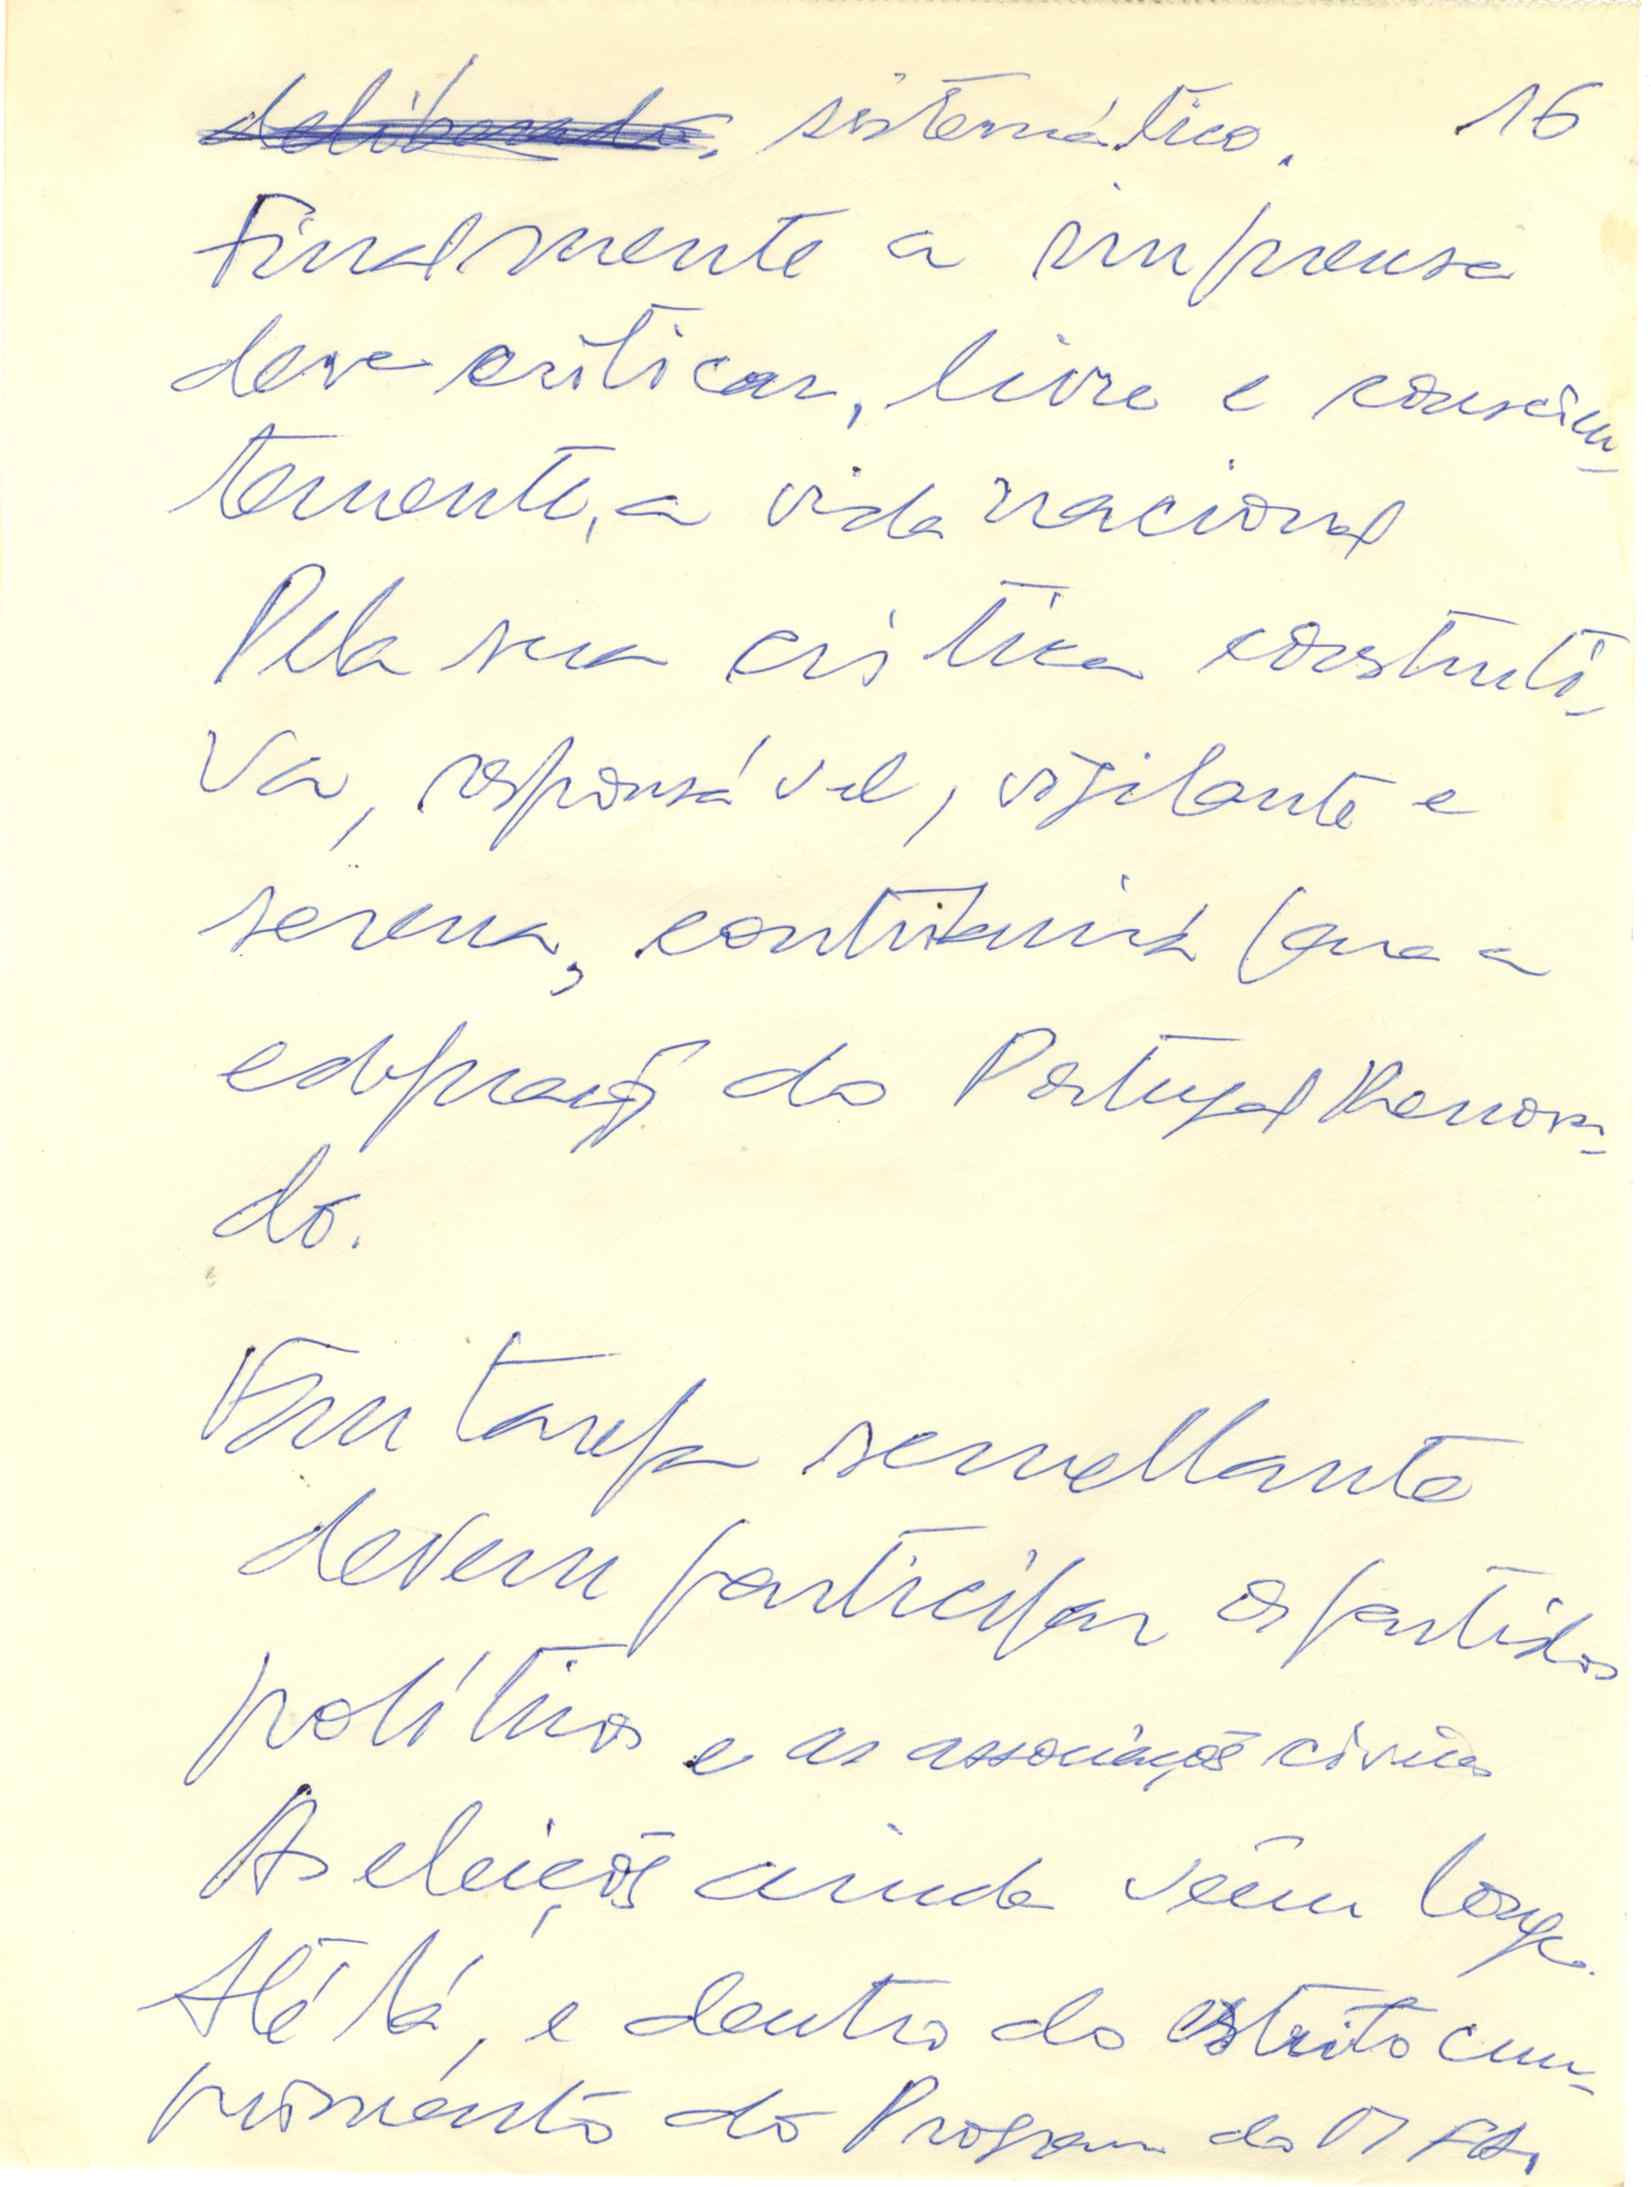 deliberado, sistemático. 16
Finalmente a imprensa
deve criticar, livre e conscien-
temente, a vida nacional
Pela sua crítica construti-
va, responsável, vigilante e
serena, contribuirá para a
edificação do Portugal Renova-
do.
Em tarefa semelhante
devem participar os partidos
políticos e as associações cívicas
As eleições ainda vêem longe.
Até lá, e dentro do estrito cum-
primento do Programa do MFA,